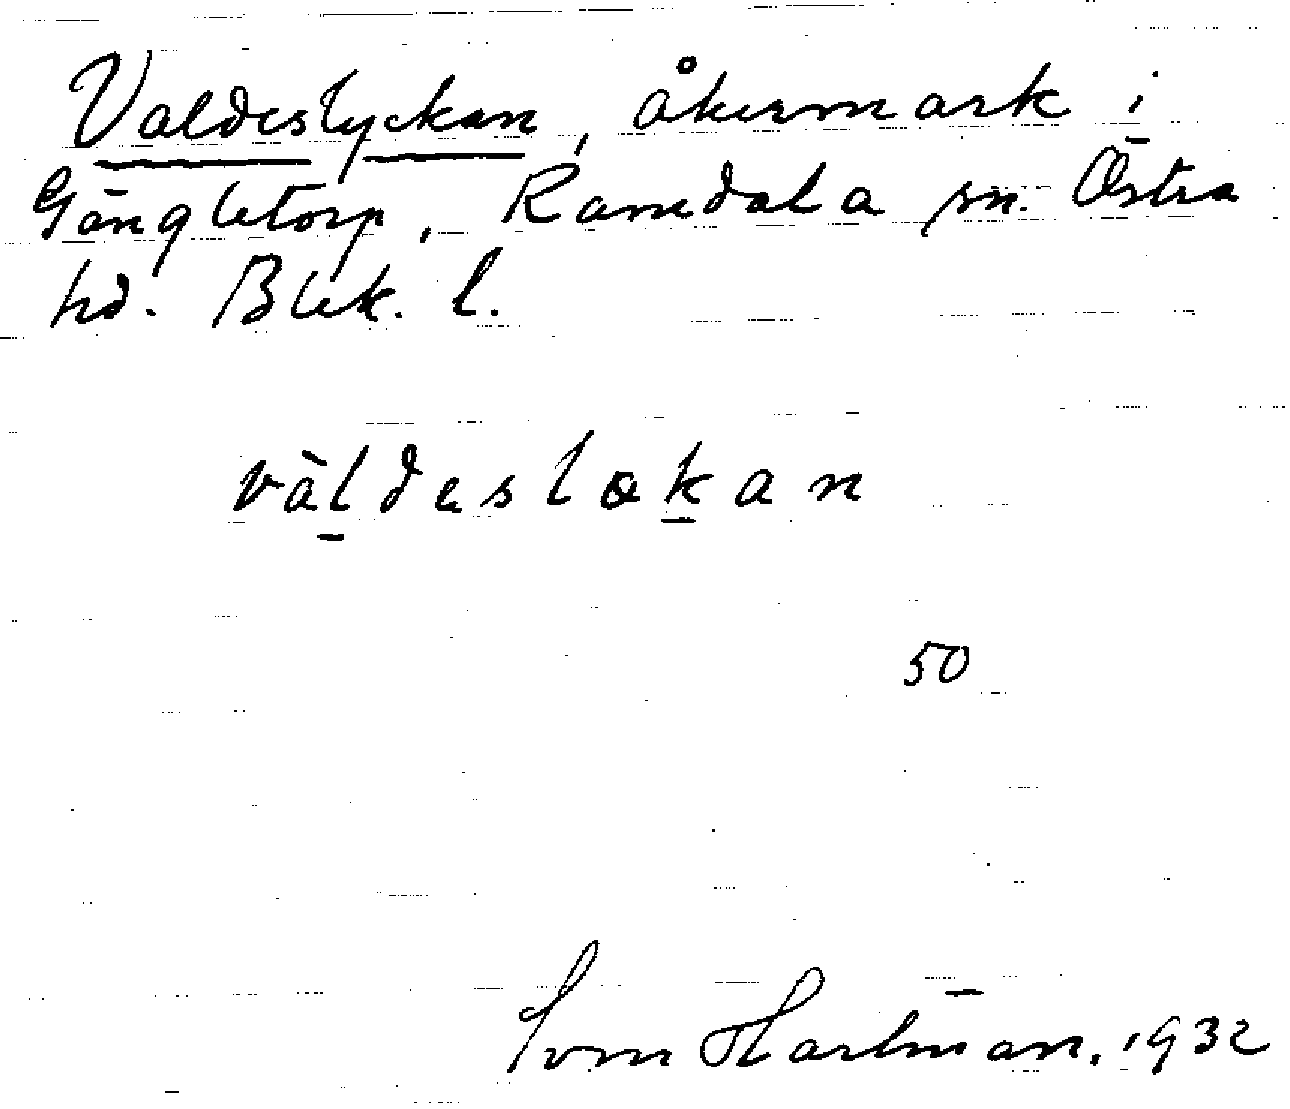 Valdeslyckan, åkermark i
Gängletorp, Ramdala sn. Östra
hd. Blek. l.
vàldeslokan
50
Sven Hartman. 1932